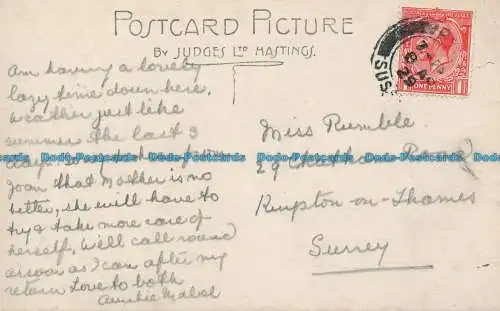 POSTCARD PICTURE
BY JUDGES LTD HASTINGS.
Am having a lovely
lazy time down here,
weather just like
summer the last 3
days. to hear from
Joan that Mother is no
better, she will have to
try & take more care of
herself, will call round
as soon as I can after my
return Love to both
Auntie Mabel
Miss Rumble.
29 Chatham Road
Kingston-on-Thames
Surrey
SUS
29
ONE PENNY
Dodo-Postcards Dodo-Postcards Dodo-Postcards Dodo-Postcards Dodo-Postcards